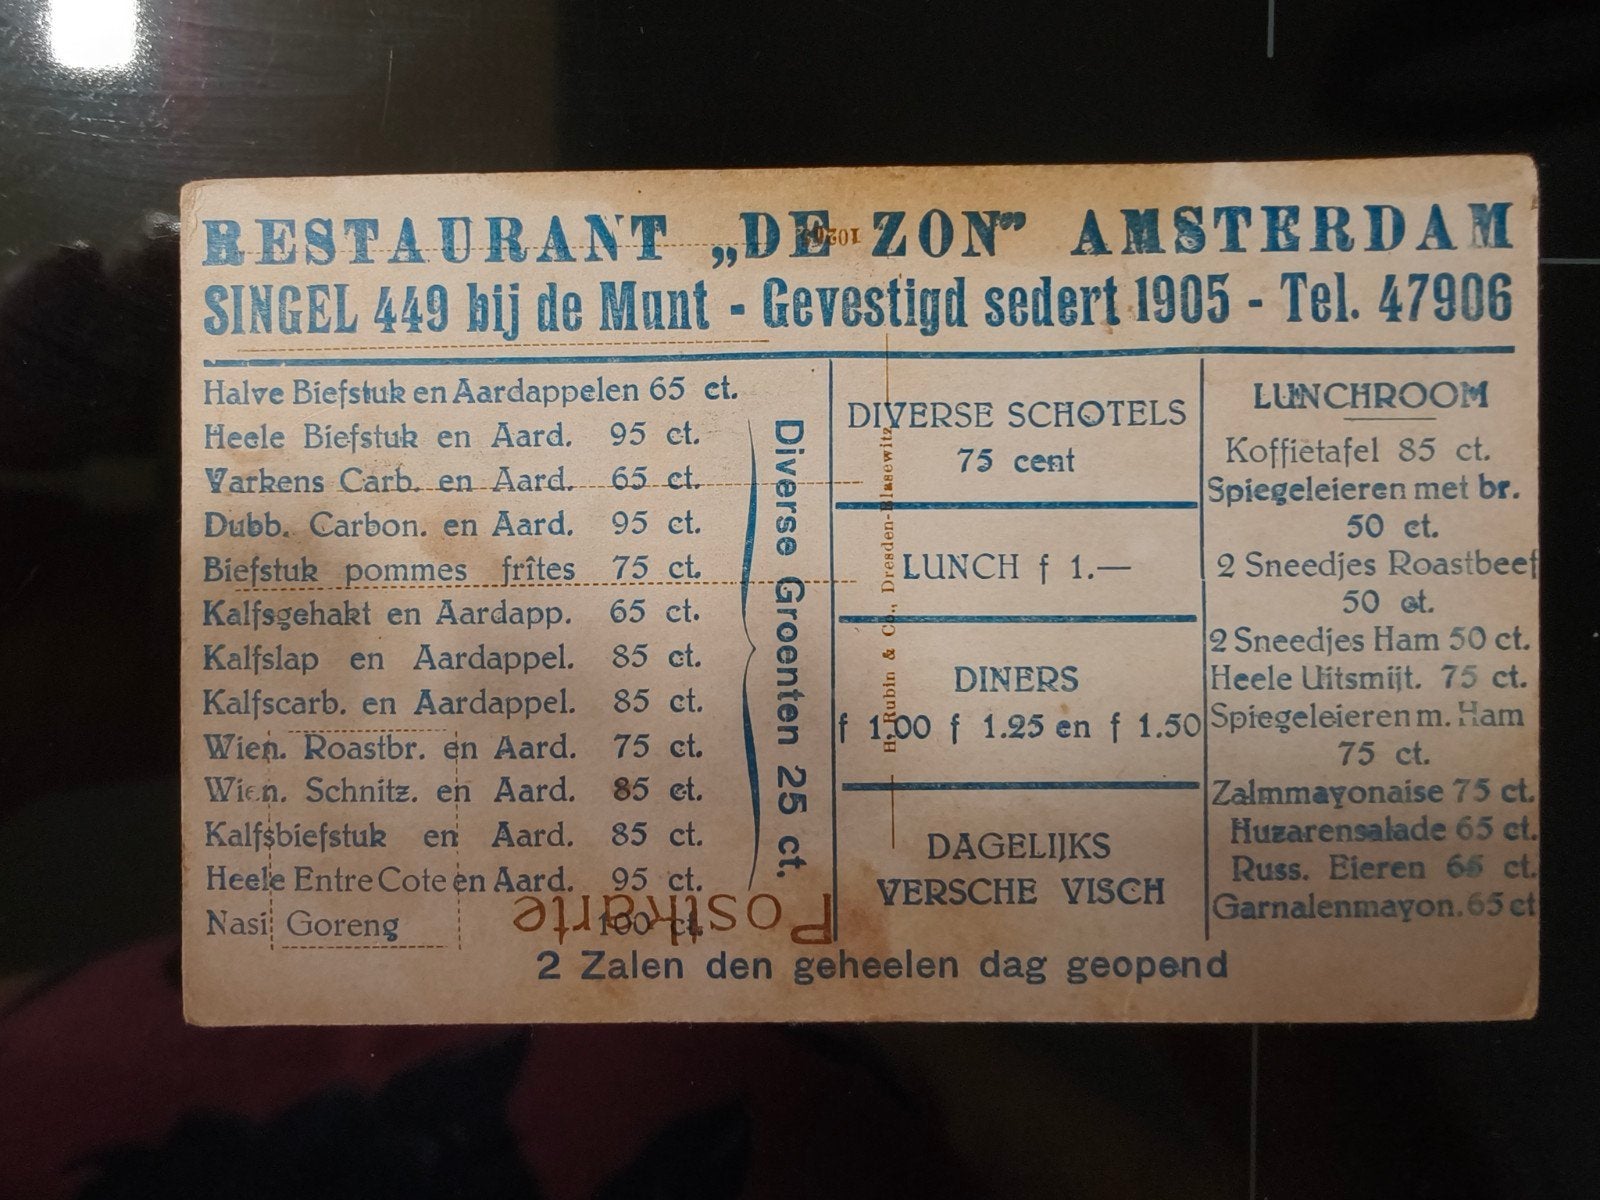 RESTAURANT „DE ZON” AMSTERDAM
SINGEL 449 bij de Munt - Gevestigd sedert 1905 - Tel. 47906
Halve Biefstuk en Aardappelen 65 ct.
Heele Biefstuk en Aard. 95 ct.
Varkens Carb. en Aard. 65 ct.
Dubb. Carbon. en Aard. 95 ct.
Biefstuk pommes frîtes 75 ct.
Kalfsgehakt en Aardapp. 65 ct.
Kalfslap en Aardappel. 85 ct.
Kalfscarb. en Aardappel. 85 ct.
Wien. Roastbr. en Aard. 75 ct.
Wien. Schnitz. en Aard. 85 ct.
Kalfsbiefstuk en Aard. 85 ct.
Heele Entre Cote en Aard. 95 ct.
Nasi Goreng 100 ct.
Diverse Groenten 25 ct.
DIVERSE SCHOTELS
75 cent
LUNCH f 1.—
DINERS
f 1.00 f 1.25 en f 1.50
DAGELIJKS
VERSCHE VISCH
LUNCHROOM
Koffietafel 85 ct.
Spiegeleieren met br.
50 ct.
2 Sneedjes Roastbeef
50 ct.
2 Sneedjes Ham 50 ct.
Heele Uitsmijt. 75 ct.
Spiegeleieren m. Ham
75 ct.
Zalmmayonaise 75 ct.
Huzarensalade 65 ct.
Russ. Eieren 65 ct.
Garnalenmayon. 65 ct
2 Zalen den geheelen dag geopend
Postkarte
H. Rubin & Co., Dresden-Blasewitz